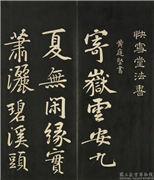 快雪堂法書
黃庭堅書
寄嶽雲安九
夏無閑緣實
蕭灑碧溪頭